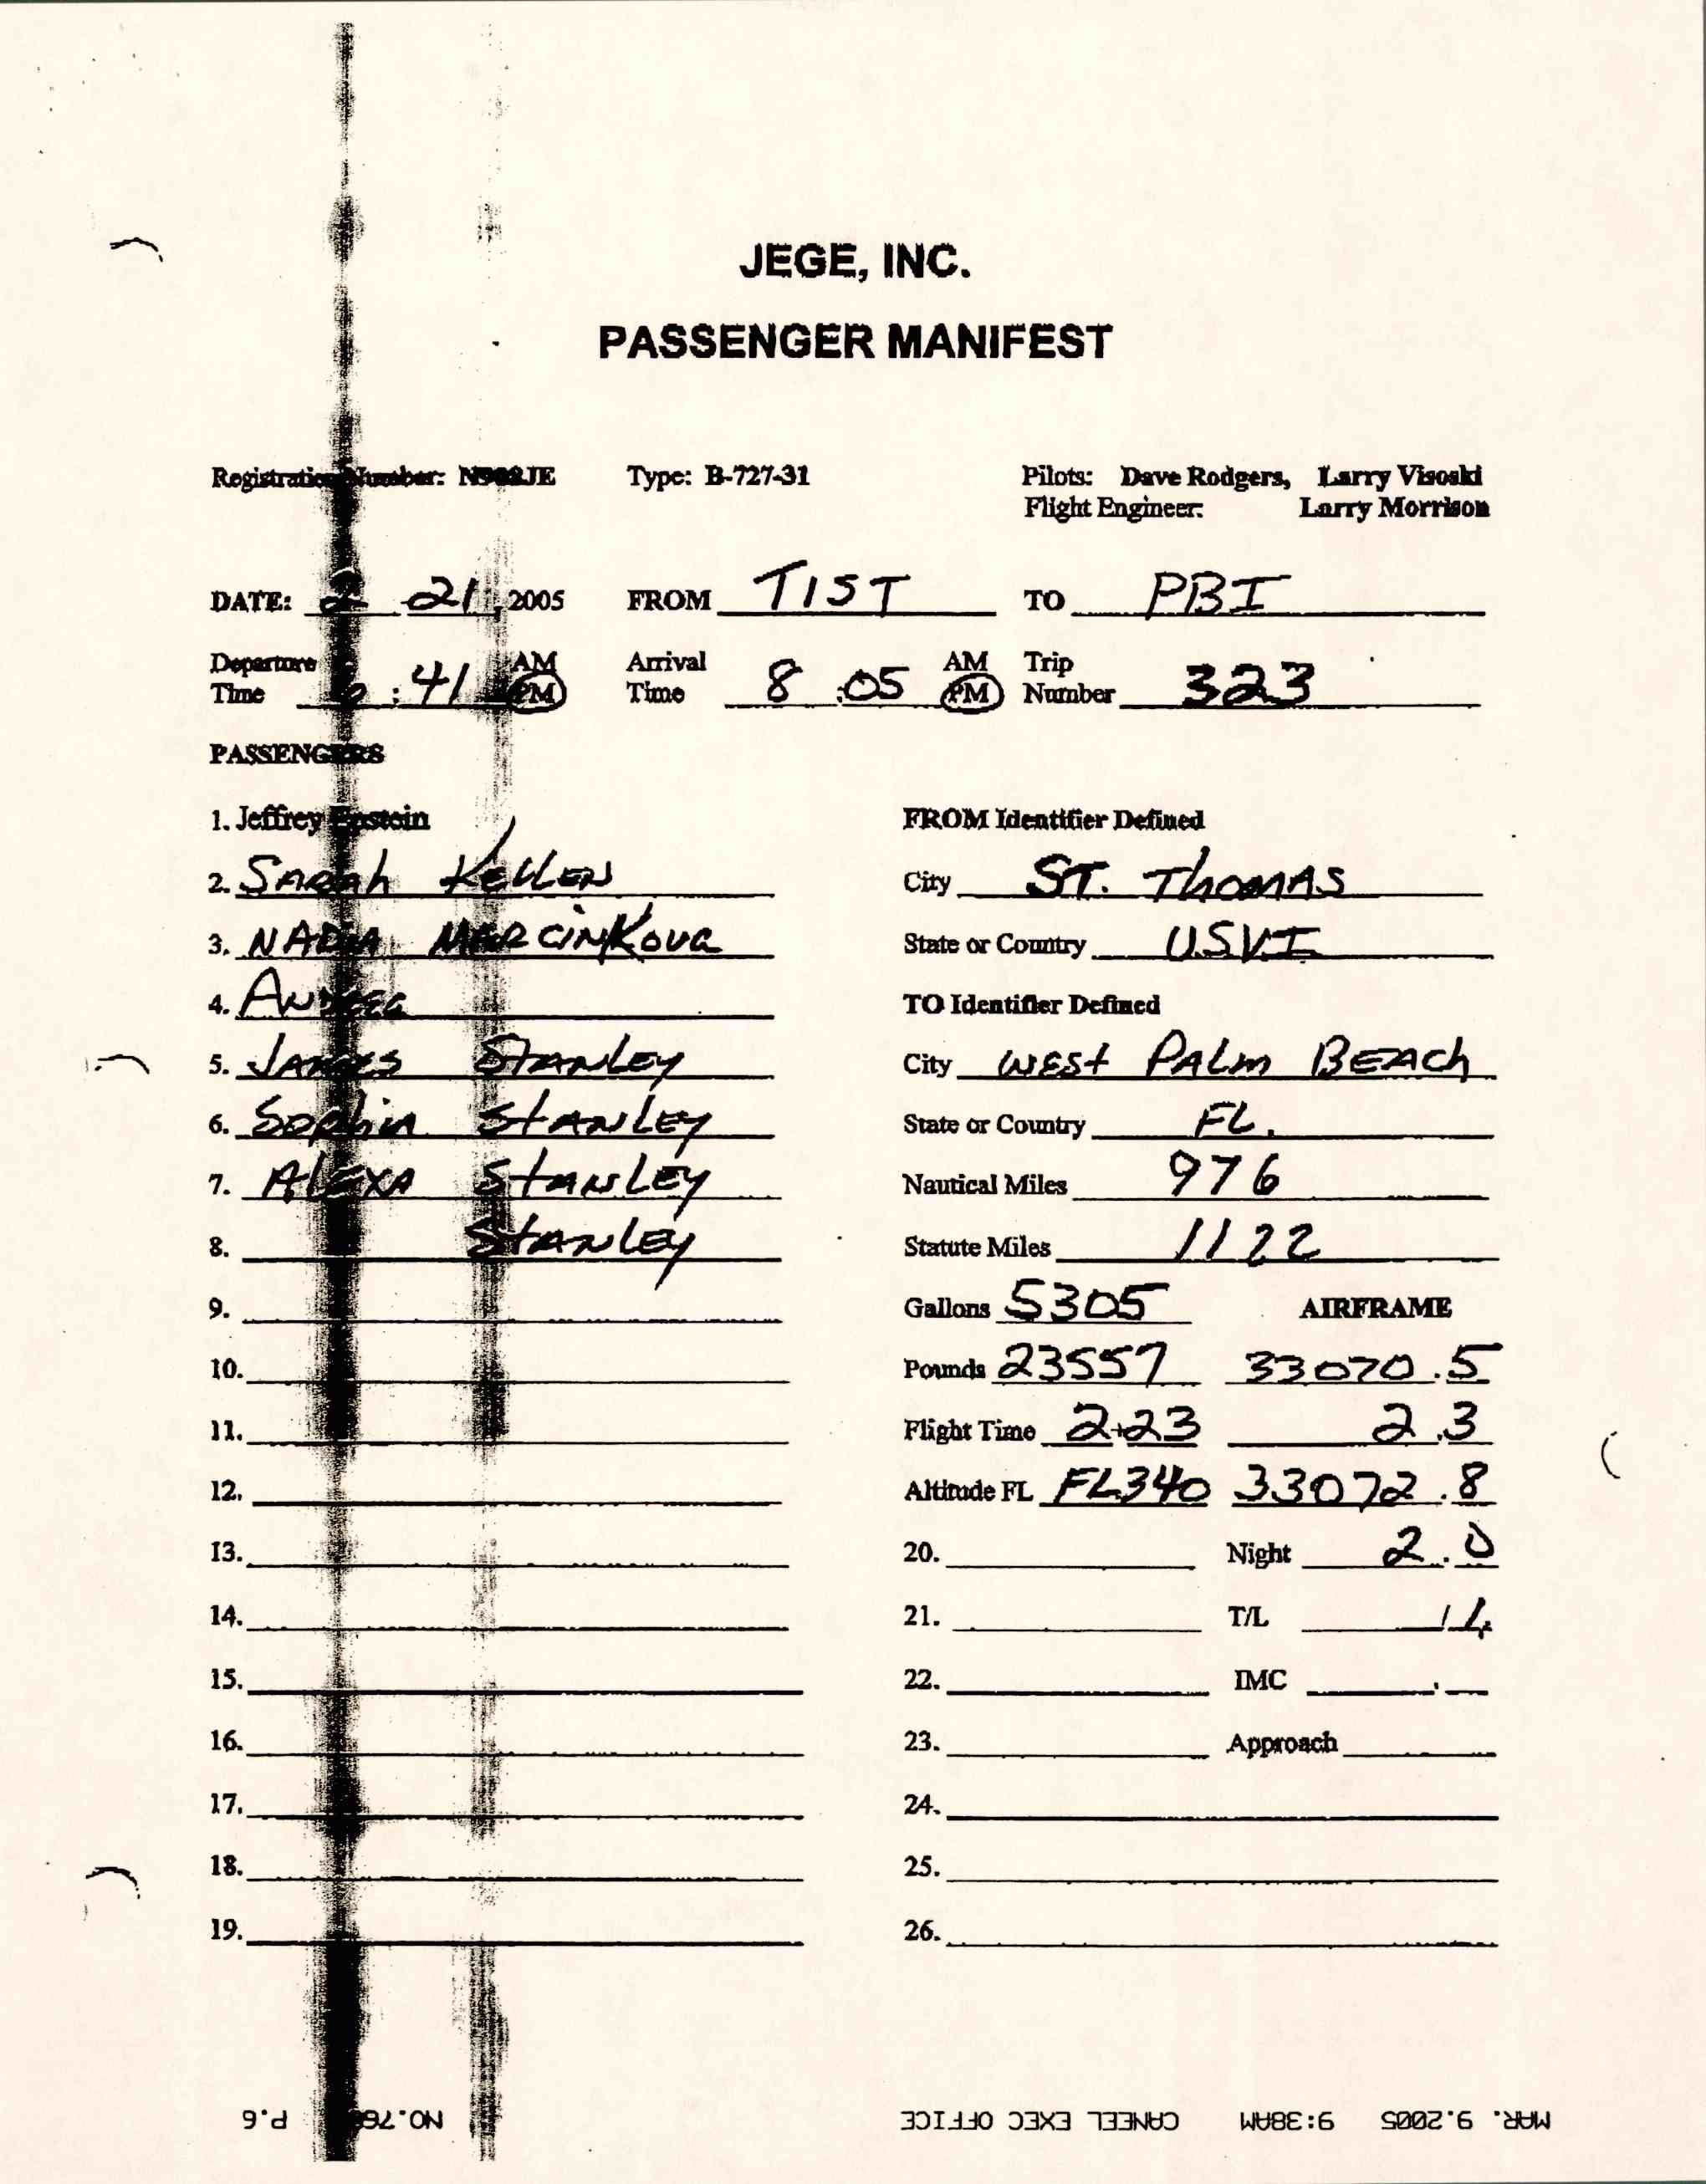 JEGE, INC.
PASSENGER MANIFEST
Registration Number: N908JE Type: B-727-31 Pilots: Dave Rodgers, Larry Visoski
Flight Engineer: Larry Morrison
DATE: 2 21, 2005 FROM TIST TO PBI
Departure Time : 41 AM PM Arrival Time 8 :05 AM PM Trip Number 323
PASSENGERS
1. Jeffrey Epstein FROM Identifier Defined
2. SARAh KELLEN City ST. ThOMAS
3. NADIA MARCINKOVA State or Country U.S.V.I
4. TO Identifier Defined
5. JAMES STANLEY City WEST PALM BEACh
6. Sophia STANLEY State or Country FL.
7. ALEXA STANLEY Nautical Miles 976
8. STANLEY Statute Miles 1122
9. Gallons 5305 AIRFRAME
10. Pounds 23557 33070.5
11. Flight Time 2+23 2.3
12. Altitude FL FL340 33072.8
13. 20. Night 2.0
14. 21. T/L
15. 22. IMC .
16. 23. Approach
17. 24.
18. 25.
19. 26.
MAR. 9.2005 9:38AM CANEEL EXEC OFFICE NO. P.6